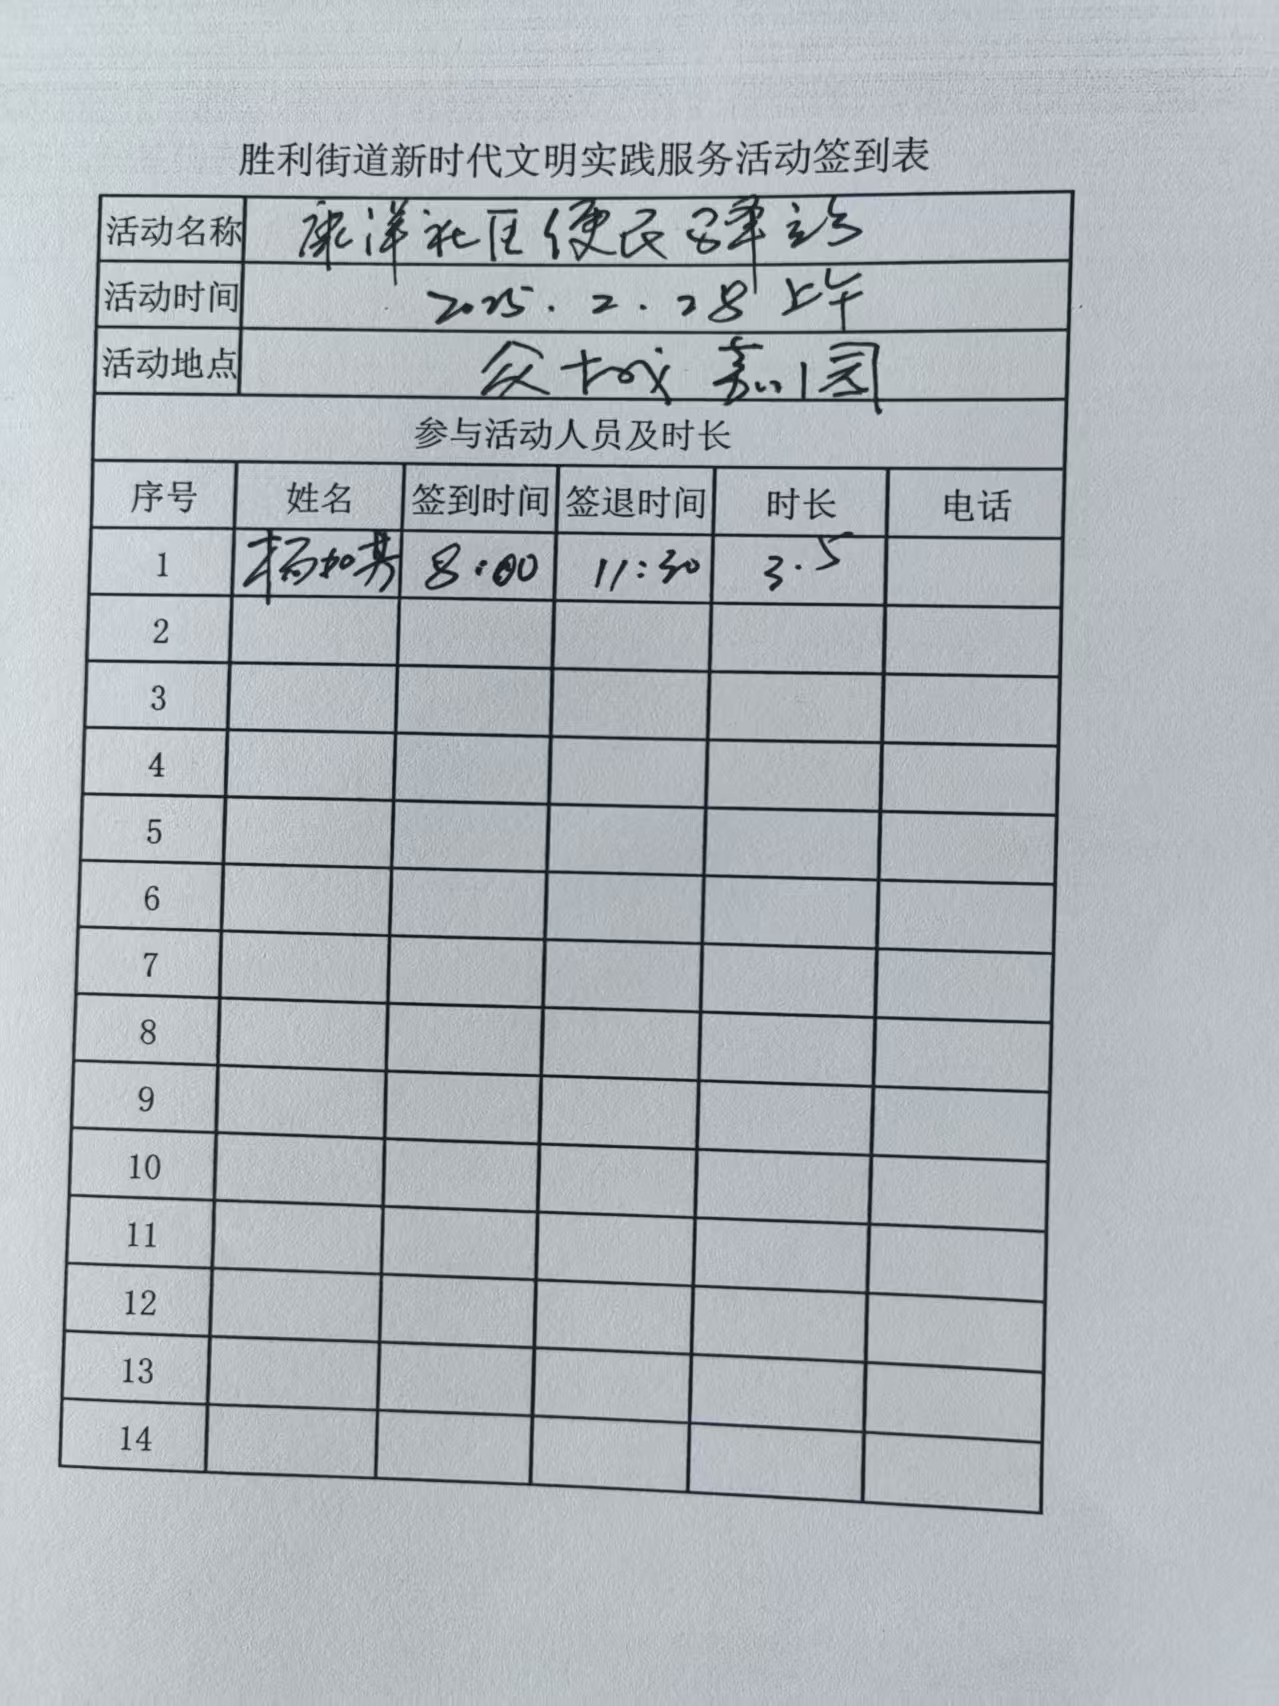 胜利街道新时代文明实践服务活动签到表
活动名称 康洋社区便民驿站
活动时间 2025.2.28上午
活动地点 众城嘉园
参与活动人员及时长
序号 姓名 签到时间 签退时间 时长 电话
1 8:00 11:30 3.5
2
3
4
5
6
7
8
9
10
11
12
13
14